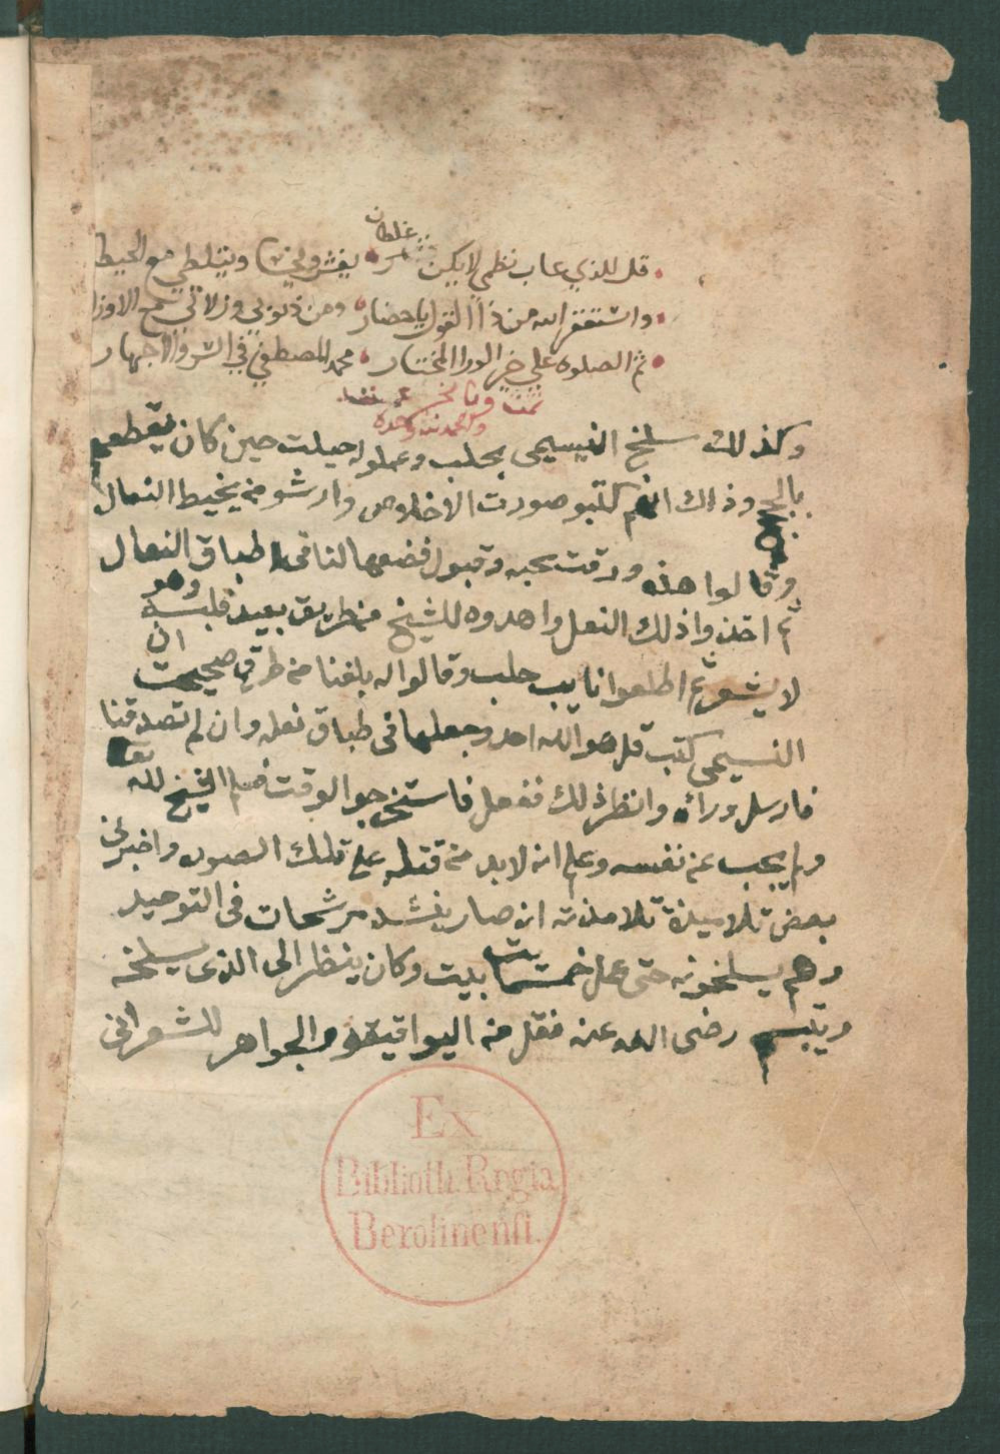 غلطان
قل للذي عاب نظمي لا يكن ويتلطي مع الحيط
واستغفر الله من ذا القول يا حضار ومن ذنوبي وزلاتي مع الاوزا
ثم الصلوه علي خير الورا المختار محمد المصطفي في السر والاجهار
تمت
والحمد لله وحده
وكذلك سلخ النسيمي بحلب وعملوله حيلت حين كان يقطعهم
بالحجج وذالك انهم كتبو صورت الاخلاص وارشو من يخيط النعال
وقالوا هذه ورقت محبه وقبول فضعها لنا في اطباق النعال
ثم اخذوا ذلك النعل واهدوه للشيخ من طريق بعيد فلبسه وهو
لا يشعر ثم اطلعوا نايب حلب وقالوا له بلغنا من طرق صحيحت ان
النسيمي كتب قل هو الله احد وجعلها في طباق نعله وان لم تصدقنا
فارسل وراءه وانظر ذلك ففعل فاستخرجوا الورقت فسلم الشيخ لله تعا
ولم يجب عن نفسه وعلم انه لابد من قتله علي تلك الصوره واخبرني
بعض تلاميذة تلامذته انه صار ينشد مرشحات في التوحيد
وهم يسلخونه حتى عمل خمسمايت بيت وكان ينظر الى الذي يسلخه
ويتبسم رضى الله عنه فنقل من اليواقيت والجواهر للشعراني
Ex
Biblioth. Regia
Berolinensi.